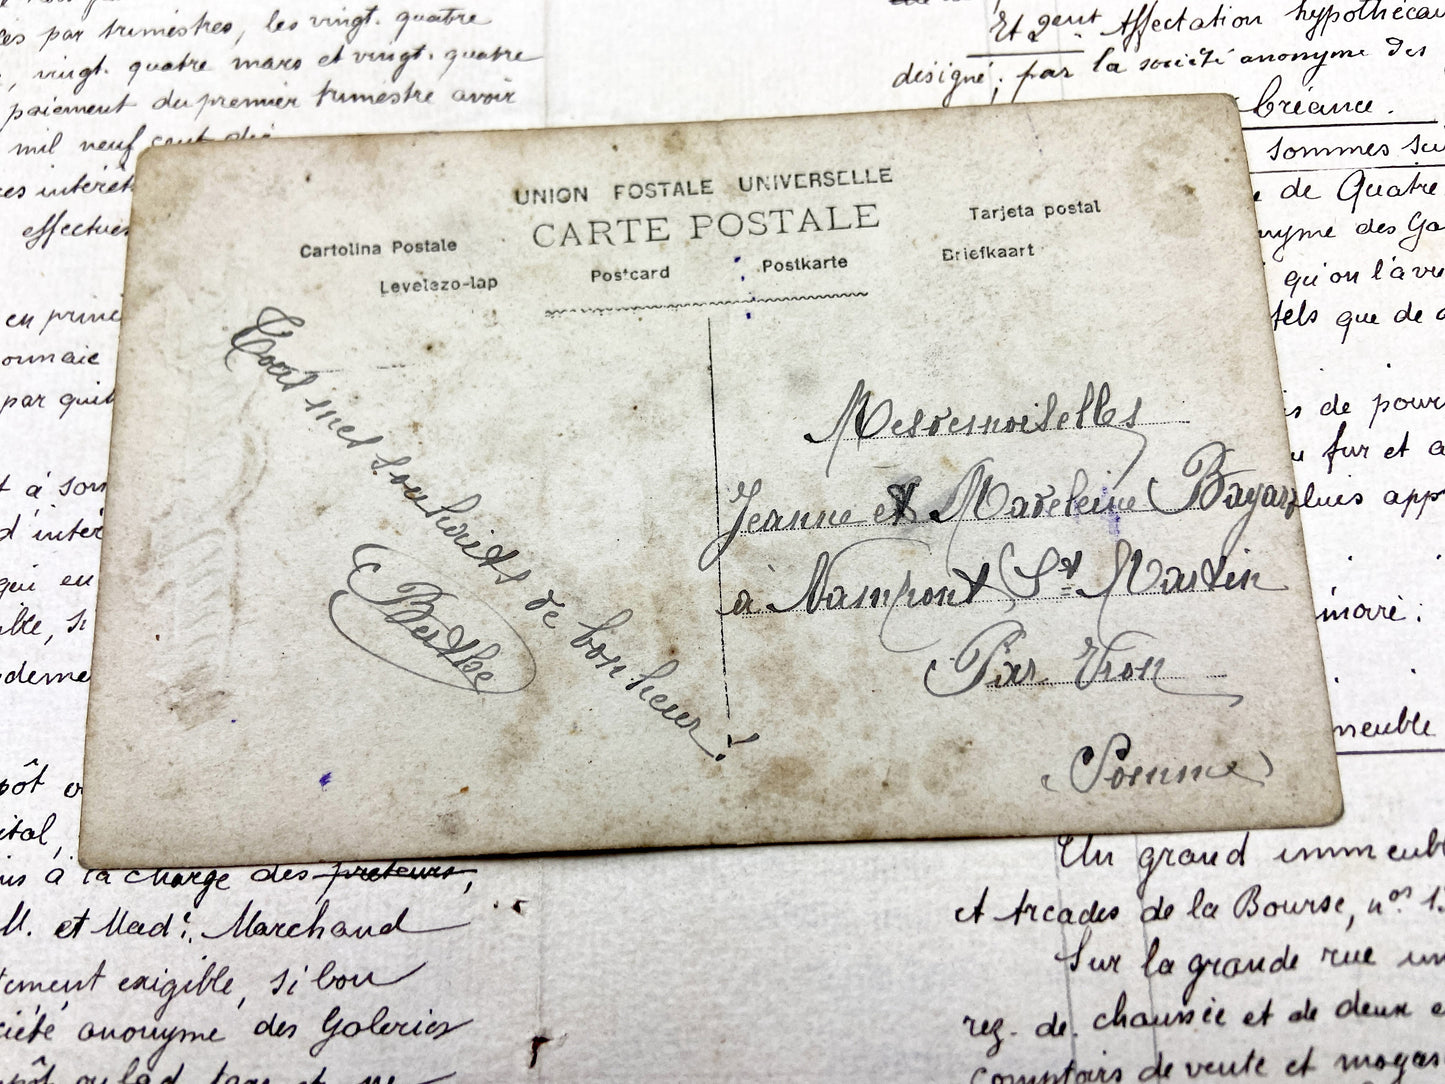 par trimestres, les vingt. quatre
vingt. quatre mars et vingt. quatre
paiement du premier trimestre avoir
mil neuf cent dix
intérêt
effectues
en princ
onnaie
par quit
t à son
d'intér
qui en
ble, si
deme
pôt
ital,
à la charge des preteurs,
M. et Made. Marchand
tement exigible, si bon
ciété anonyme des Galeries
UNION POSTALE UNIVERSELLE
CARTE POSTALE
Cartolina Postale
Levelezo-lap
Postcard
Postkarte
Tarjeta postal
Briefkaart
Tous mes souhaits de bonheur !
Berthe
Mesdemoiselles
Jeanne et Madeleine Bayar
à Nampont St Martin
Par Vron
(Somme)
Et 2ent Affectation hypothécai
désigné; par la société anonyme des
bréance.
sommes su
de Quatre
nyme des Ga
qu'on l'a
tels que de
is de pour
u fur et a
pluis app
imoré :
meuble
Un grand immeubl
et Arcades de la Bourse, nos 1.
Sur la grande rue un
rez. de. chaussée et de deux
comptoirs de vente et magas